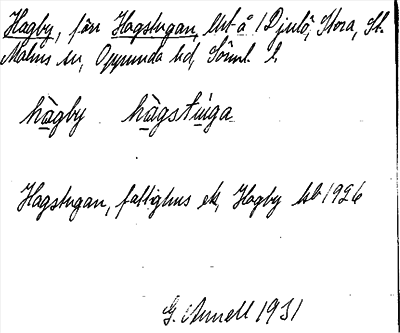 Hagby, förr Hagstugan, lht å /Djulö, Stora, St.
Malms sn, Oppunda hd, Sörml. l.
hagby hagstuga
Hagstugan, fattighus ek, Hagby lht 1926
G. Annell 1931